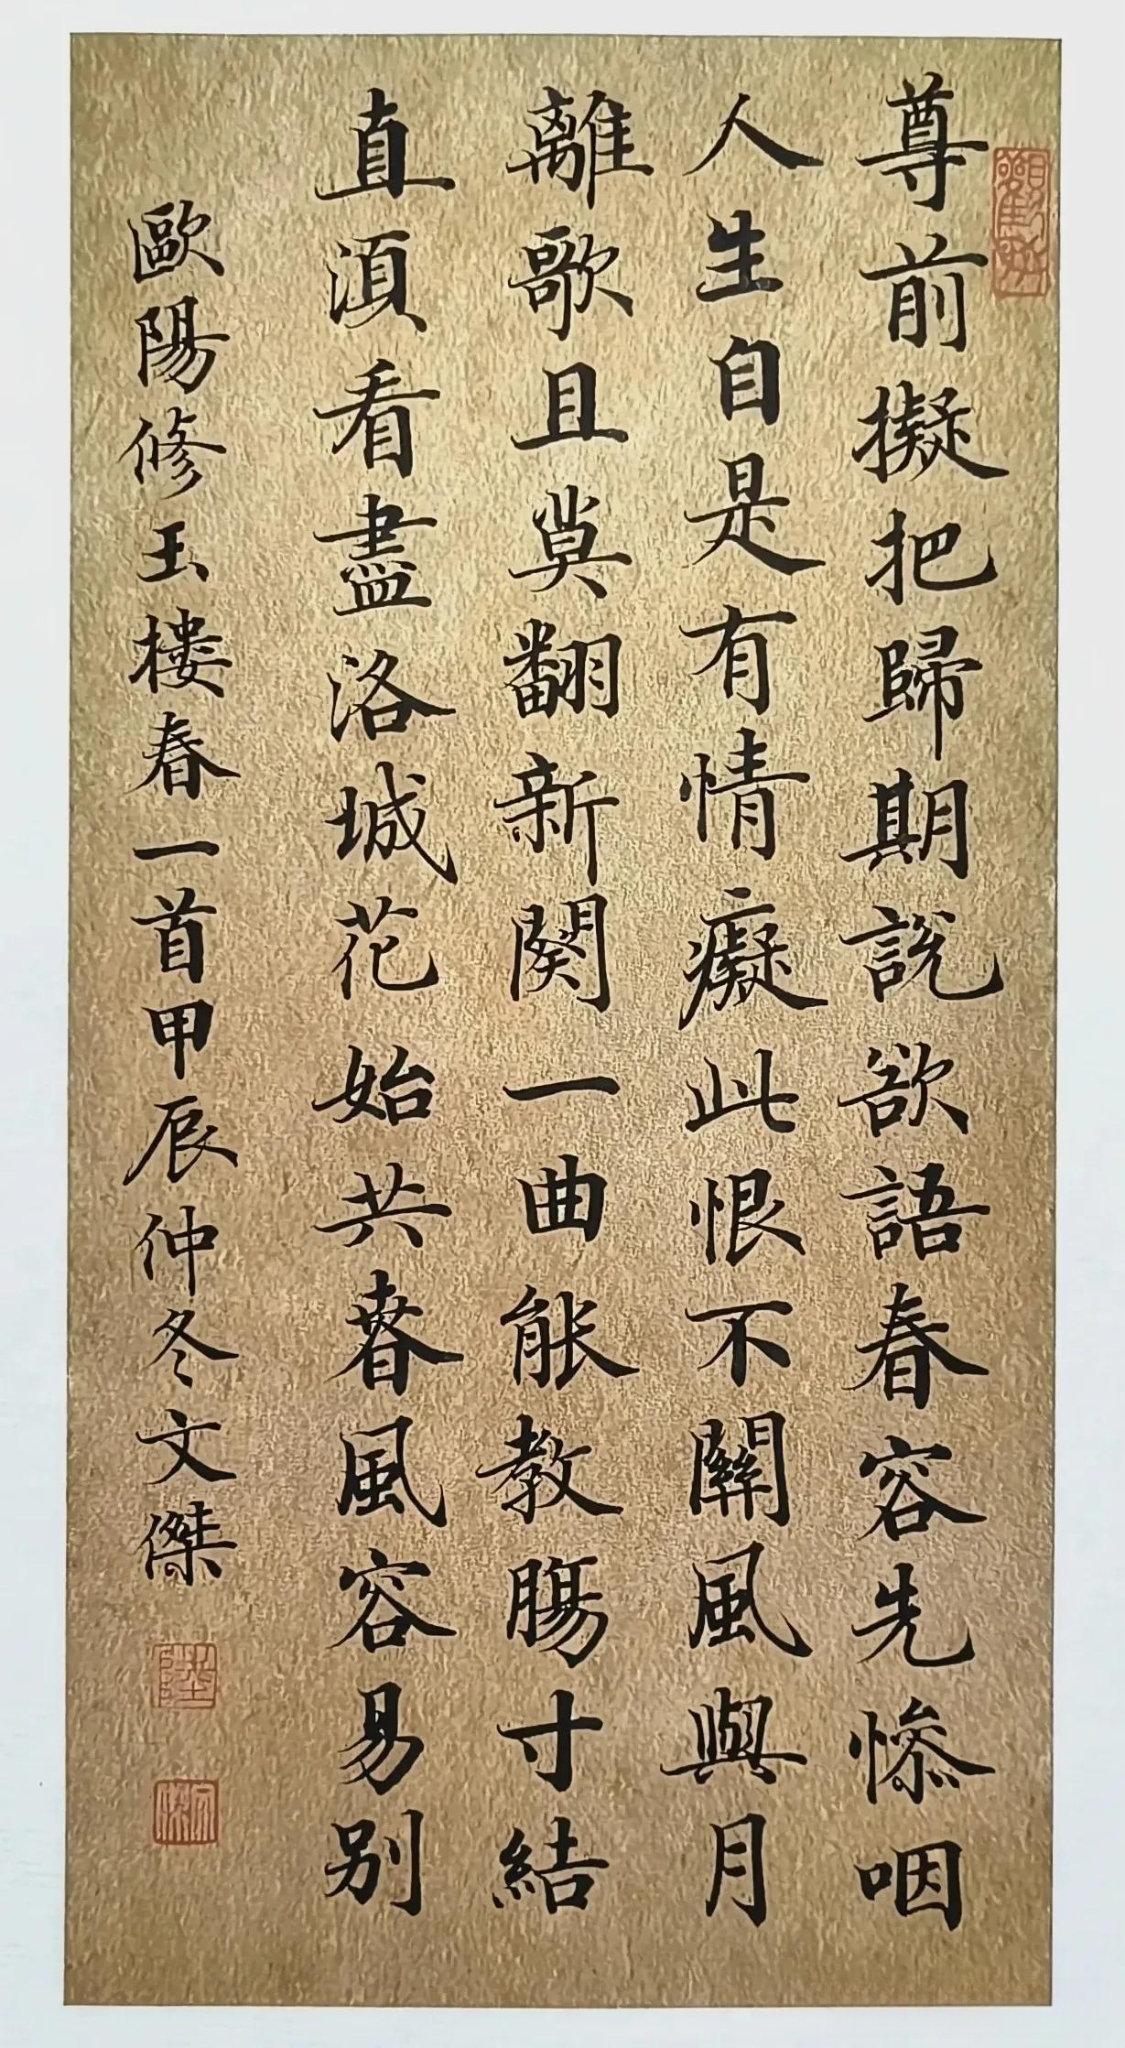 尊前擬把歸期說欲語春容先慘咽
人生自是有情癡此恨不關風與月
離歌且莫翻新闋一曲能教腸寸結
直須看盡洛城花始共春風容易別
歐陽修玉樓春一首甲辰仲冬文傑